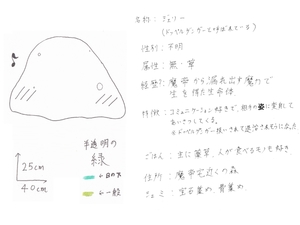 名称：ゼリー
(ドッペルゲンガーて呼ばれてる)
性別：不明
属性：無・草
経歴：魔帯から漏れ出す魔力で
生を得た生命体
特徴：コミュニケーション好きで、相手の姿に変形して
あいさつしてくる。
※ドッペルゲンガー扱いされて退治されそうになった
ごはん：主に薬草、人が食べるモノも好き。
住所：魔帯宅近くの森
シュミ：宝石集め、骨集め
半透明の
緑
←目の下
←一般
25cm
40cm
♪